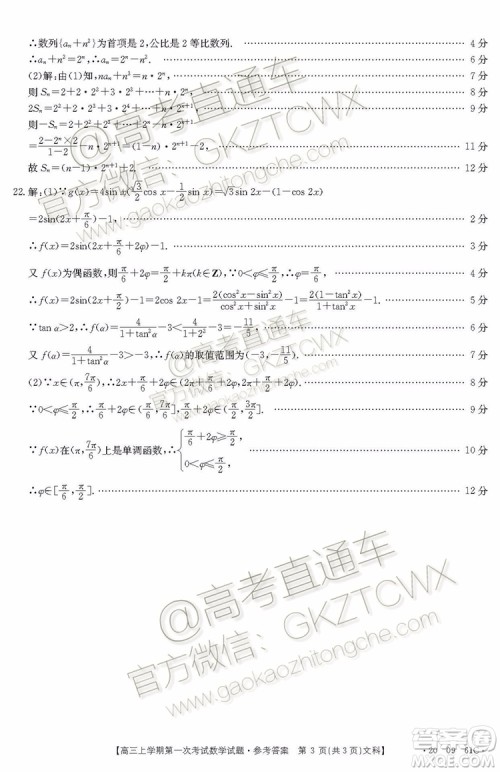 ∴数列{aₙ+n²}为首项是2,公比是2等比数列. 4分
∴aₙ+n²=2ⁿ,∴aₙ=2ⁿ-n². 6分
(2)解:由(1)知,naₙ+n³=n·2ⁿ, 7分
则Sₙ=2+2·2²+3·2³+…+n·2ⁿ, 8分
2Sₙ=2²+2·2³+3·2⁴+…+n·2ⁿ⁺¹, 9分
则-Sₙ=2+2²+2³+…+2ⁿ-n·2ⁿ⁺¹
=(2-2ⁿ×2)/(1-2)-n·2ⁿ⁺¹=(1-n)·2ⁿ⁺¹-2, 11分
故Sₙ=(n-1)·2ⁿ⁺¹+2. 12分
22.解:(1)∵g(x)=4sin x(√3/2 cos x-1/2 sin x)=√3 sin 2x-(1-cos 2x)
=2sin(2x+π/6)-1, 2分
∴f(x)=2sin(2x+π/6+2φ)-1. 3分
又f(x)为偶函数,∴π/6+2φ=π/2+kπ(k∈Z),∵0<φ≤π/2,∴φ=π/6. 4分
∴f(x)=2sin(2x+π/2)-1=2cos 2x-1=2(cos²x-sin²x)/(cos²x+sin²x)-1=4/(1+tan²x)-3. 5分
∵tan α>2,∴f(α)=4/(1+tan²α)-3<4/(1+2²)-3=-11/5, 6分
又f(α)=4/(1+tan²α)-3>-3,∴f(α)的取值范围为(-3,-11/5). 7分
(2)∵x∈(π,7π/6),∴2x+π/6+2φ∈(2π+π/6+2φ,2π+π/2+2φ). 8分
∵0<φ≤π/2,∴π/6+2φ∈(π/6,7π/6],π/2+2φ∈(π/2,3π/2]. 9分
∵f(x)在(π,7π/6)上是单调函数,∴{π/6+2φ≥π/2, 0<φ≤π/2, 10分
∴φ∈[π/6,π/2]. 12分
@高考直通车
官方微信:GKZTCWX
www.gaokaozhitongche.com
@高考直通车
官方微信:GKZTCWX
www.gaokaozhitongche.com
【高三上学期第一次考试数学试题·参考答案 第3页(共3页)文科】